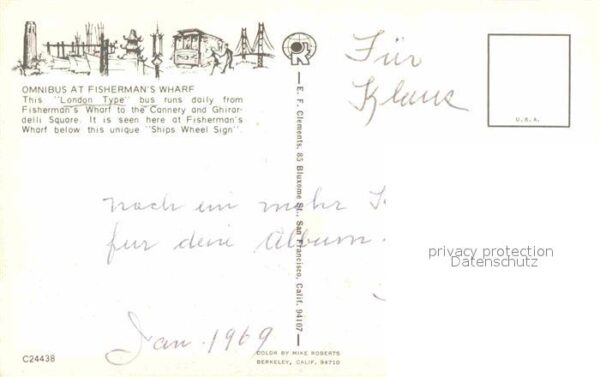 OMNIBUS AT FISHERMAN'S WHARF
This "London Type" bus runs daily from
Fisherman's Wharf to the Cannery and Ghirar-
delli Square. It is seen here at Fisherman's
Wharf below this unique "Ships Wheel Sign".
Für
Klaus
U.S.A.
E. F. Clements, 85 Bluxome St., San Francisco, Calif. 94107
noch ein mehr
für deine Album.
Jan. 1969
privacy protection
Datenschutz
C24438
COLOR BY MIKE ROBERTS
BERKELEY, CALIF. 94710